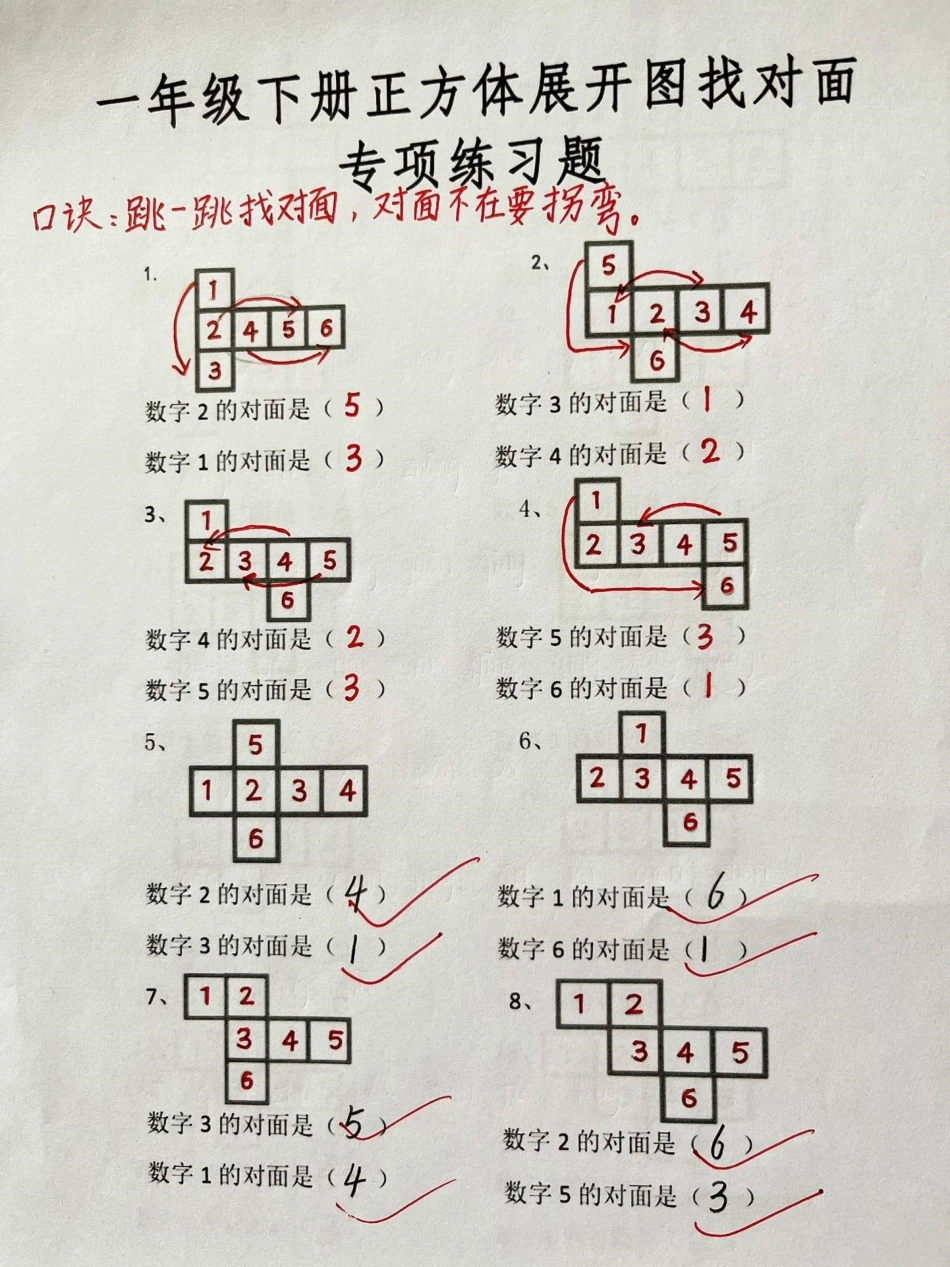 一年级下册正方体展开图找对面
专项练习题
口诀:跳一跳找对面,对面不在要拐弯。
1.
1
2 4 5 6
3
数字 2 的对面是( 5 )
数字 1 的对面是( 3 )
2、
5
1 2 3 4
6
数字 3 的对面是( 1 )
数字 4 的对面是( 2 )
3、
1
2 3 4 5
6
数字 4 的对面是( 2 )
数字 5 的对面是( 3 )
4、
1
2 3 4 5
6
数字 5 的对面是( 3 )
数字 6 的对面是( 1 )
5、
5
1 2 3 4
6
数字 2 的对面是( 4 )
数字 3 的对面是( 1 )
6、
1
2 3 4 5
6
数字 1 的对面是( 6 )
数字 6 的对面是( 1 )
7、
1 2
3 4 5
6
数字 3 的对面是( 5 )
数字 1 的对面是( 4 )
8、
1 2
3 4 5
6
数字 2 的对面是( 6 )
数字 5 的对面是( 3 )